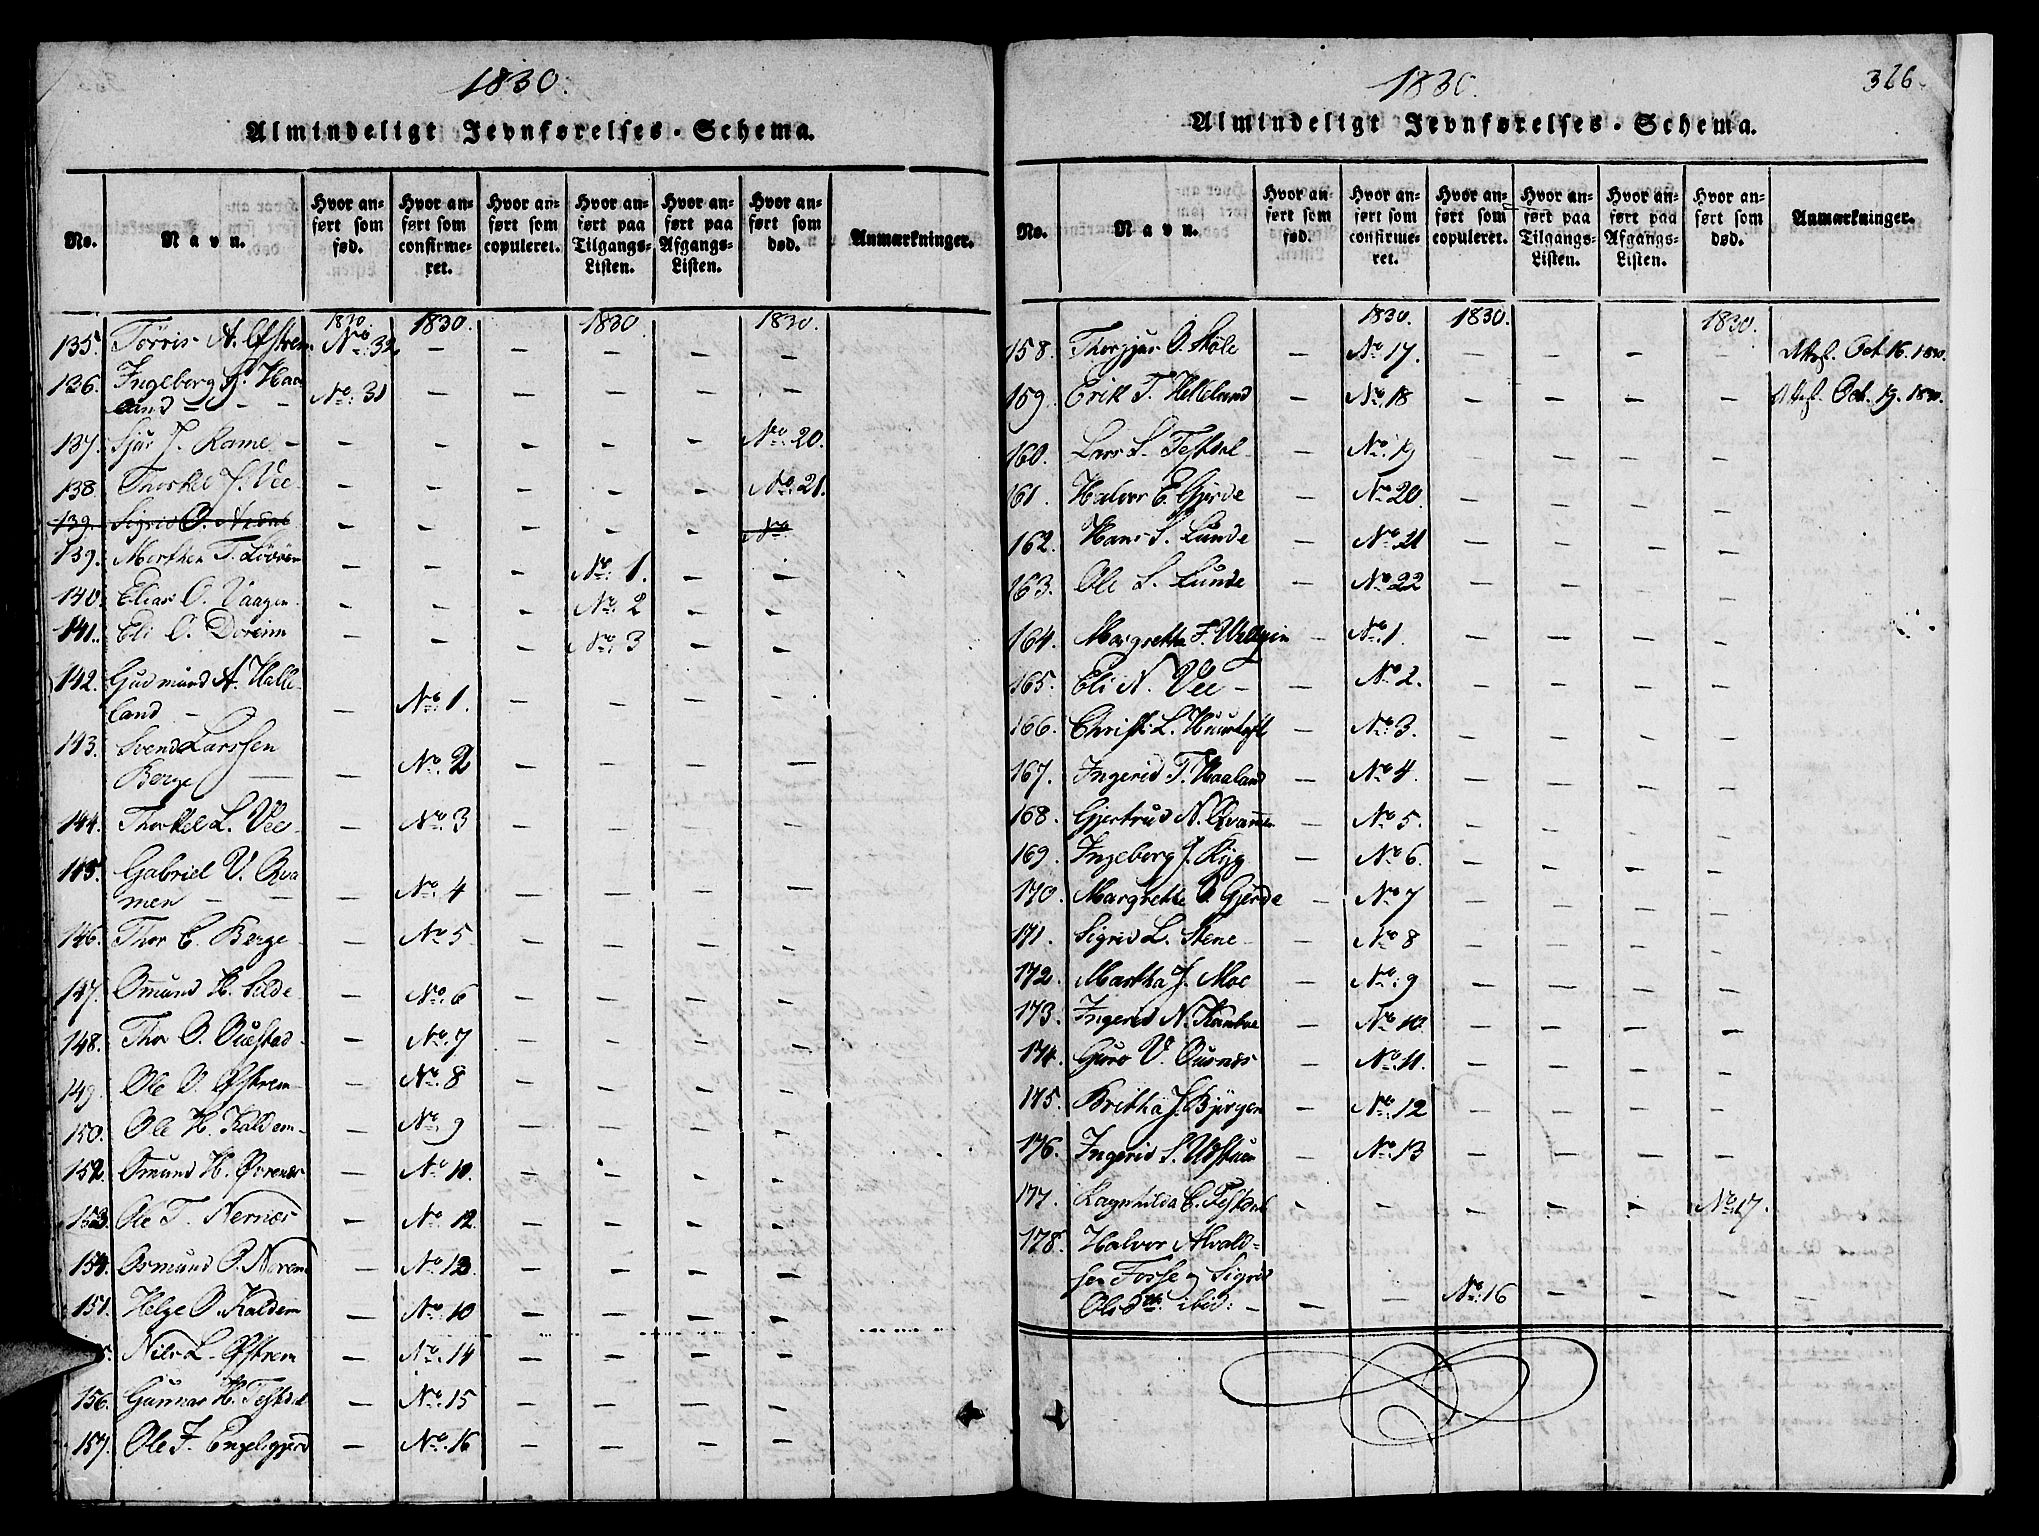 1830.
Almindeligt Jevnførelses-Schema.
No.
Navn.
Hvor anført som fød.
Hvor anført som confirmeret.
Hvor anført som copuleret.
Hvor anført paa Tilgangs-Listen.
Hvor anført paa Afgangs-Listen.
Hvor anført som død.
Anmærkninger.
1830 1830. 1830 1830.
135. Torris A. Østrem No. 32 — — — — —
136. Ingeborg H. Haa
land — — — No. 31 — — — — —
137. Sjur J. Rame — — — — — — No. 20.
138. Thorkel J. Vee — — — — — No. 21.
139. Sigrid O. — — — — — No
139. Morthen T. — — — No. 1. — —
140. Elias O. Vaagen — — — No. 2 — —
141. Eli O. Doreim — — — No. 3 — —
142. Gudmund A. Helle-
land — — No. 1. — — — —
143. Svend Larssen
Berge — — No. 2 — — — —
144. Thorkel L. Vee — — No. 3 — — — —
145. Gabriel V. Qva
men — — — No. 4 — — — —
146. Thor E. Berge — — No. 5 — — — —
147. Omund H. Selde — No. 6 — — — —
148. Thor O. Ouestad — No. 7 — — — —
149. Ole O. Østrem — No. 8 — — — —
150. Ole H. Kaldem — — No. 9 — — — —
152. Omund H. Øvrenes — No. 10. — — — —
153. Ole T. Nernæs — No. 12. — — — —
154. Osmund O. Norem — No. 13. — — — —
151. Helge O. Kaldem — No. 10 — — — —
Nils L. Østrem — No. 14 — — — —
156. Gunnar H. Testdal — No. 15 — — — —
157. Ole J. Engelsgjerd — No. 16 — — — —
1830.
326.
Almindeligt Jevnførelses-Schema.
No.
Navn.
Hvor anført som fød.
Hvor anført som confirmeret.
Hvor anført som copuleret.
Hvor anført paa Tilgangs-Listen.
Hvor anført paa Afgangs-Listen.
Hvor anført som død.
Anmærkninger.
1830. 1830. 1830.
158. Thorgjur O. Støle — No. 17. — — — — Attest. Oct. 16. 1830.
159. Erik T. Helleland — No. 18 — — — — Attest. Oct. 19. 1830.
160. Lars L. Testdal — No. 19 — — — —
161. Halvor E. Gjerde — No. 20. — — — —
162. Hans S. Lunde — No. 21 — — — —
163. Ole L. Lunde — No. 22 — — — —
164. Margretha F. — No. 1. — — — —
165. Eli N. Vee — — No. 2. — — — —
166. Christi L. — No. 3. — — — —
167. Ingerid T. Haaland — No. 4. — — — —
168. Gjertrud N. Qvamen — No. 5. — — — —
169. Ingeborg J. Ryg — No. 6. — — — —
170. Margrethe O. Gjerde — No. 7 — — — —
171. Sigrid L. Stene — — No. 8 — — — —
172. Martha J. Moe — No. 9 — — — —
173. Ingerid N. — No. 10. — — — —
174. Guro V. Ournes — No. 11. — — — —
175. Britha J. Bjørgen — No. 12 — — — —
176. Ingerid S. Udstuen — No. 13 — — — —
177. Ragnhilda E. Testdal — — — — — No. 17.
178. Halvor Alvald-
sen Fosse og Sigrid
Olsdtr. ibid: — — — No. 16 — — —